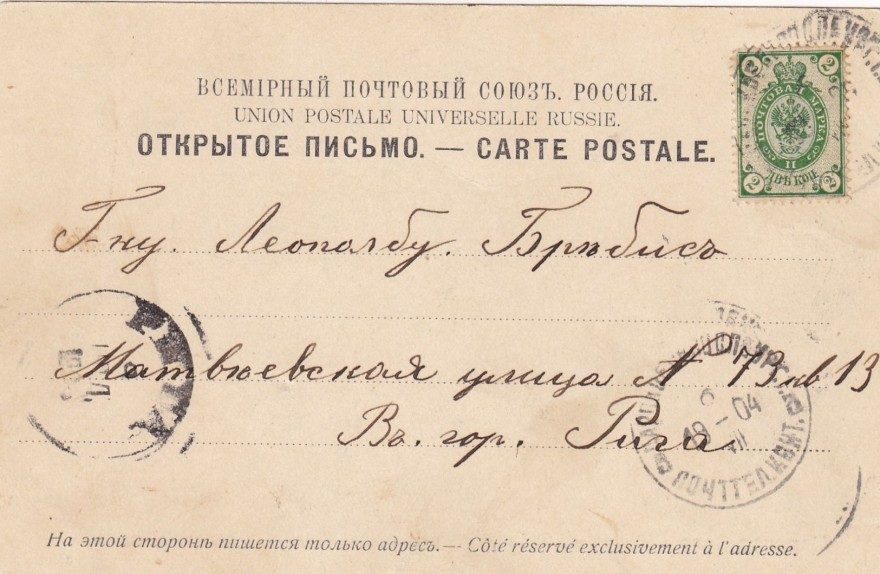 ВСЕМІРНЫЙ ПОЧТОВЫЙ СОЮЗЪ. РОССІЯ.
UNION POSTALE UNIVERSELLE RUSSIE.
ОТКРЫТОЕ ПИСЬМО. — CARTE POSTALE.
2 2
ПОЧТОВАЯ МАРКА
II
ДВѢ КОП.
2 2
Гну. Леополду. Брѣбисъ
РИГА
Матвѣевская улица N 73 кв 13
Въ. гор. Рига
18 - 04
ПОЧТ ТЕЛ КОНТ.
На этой сторонѣ пишется только адресъ. — Côté réservé exclusivement à l'adresse.